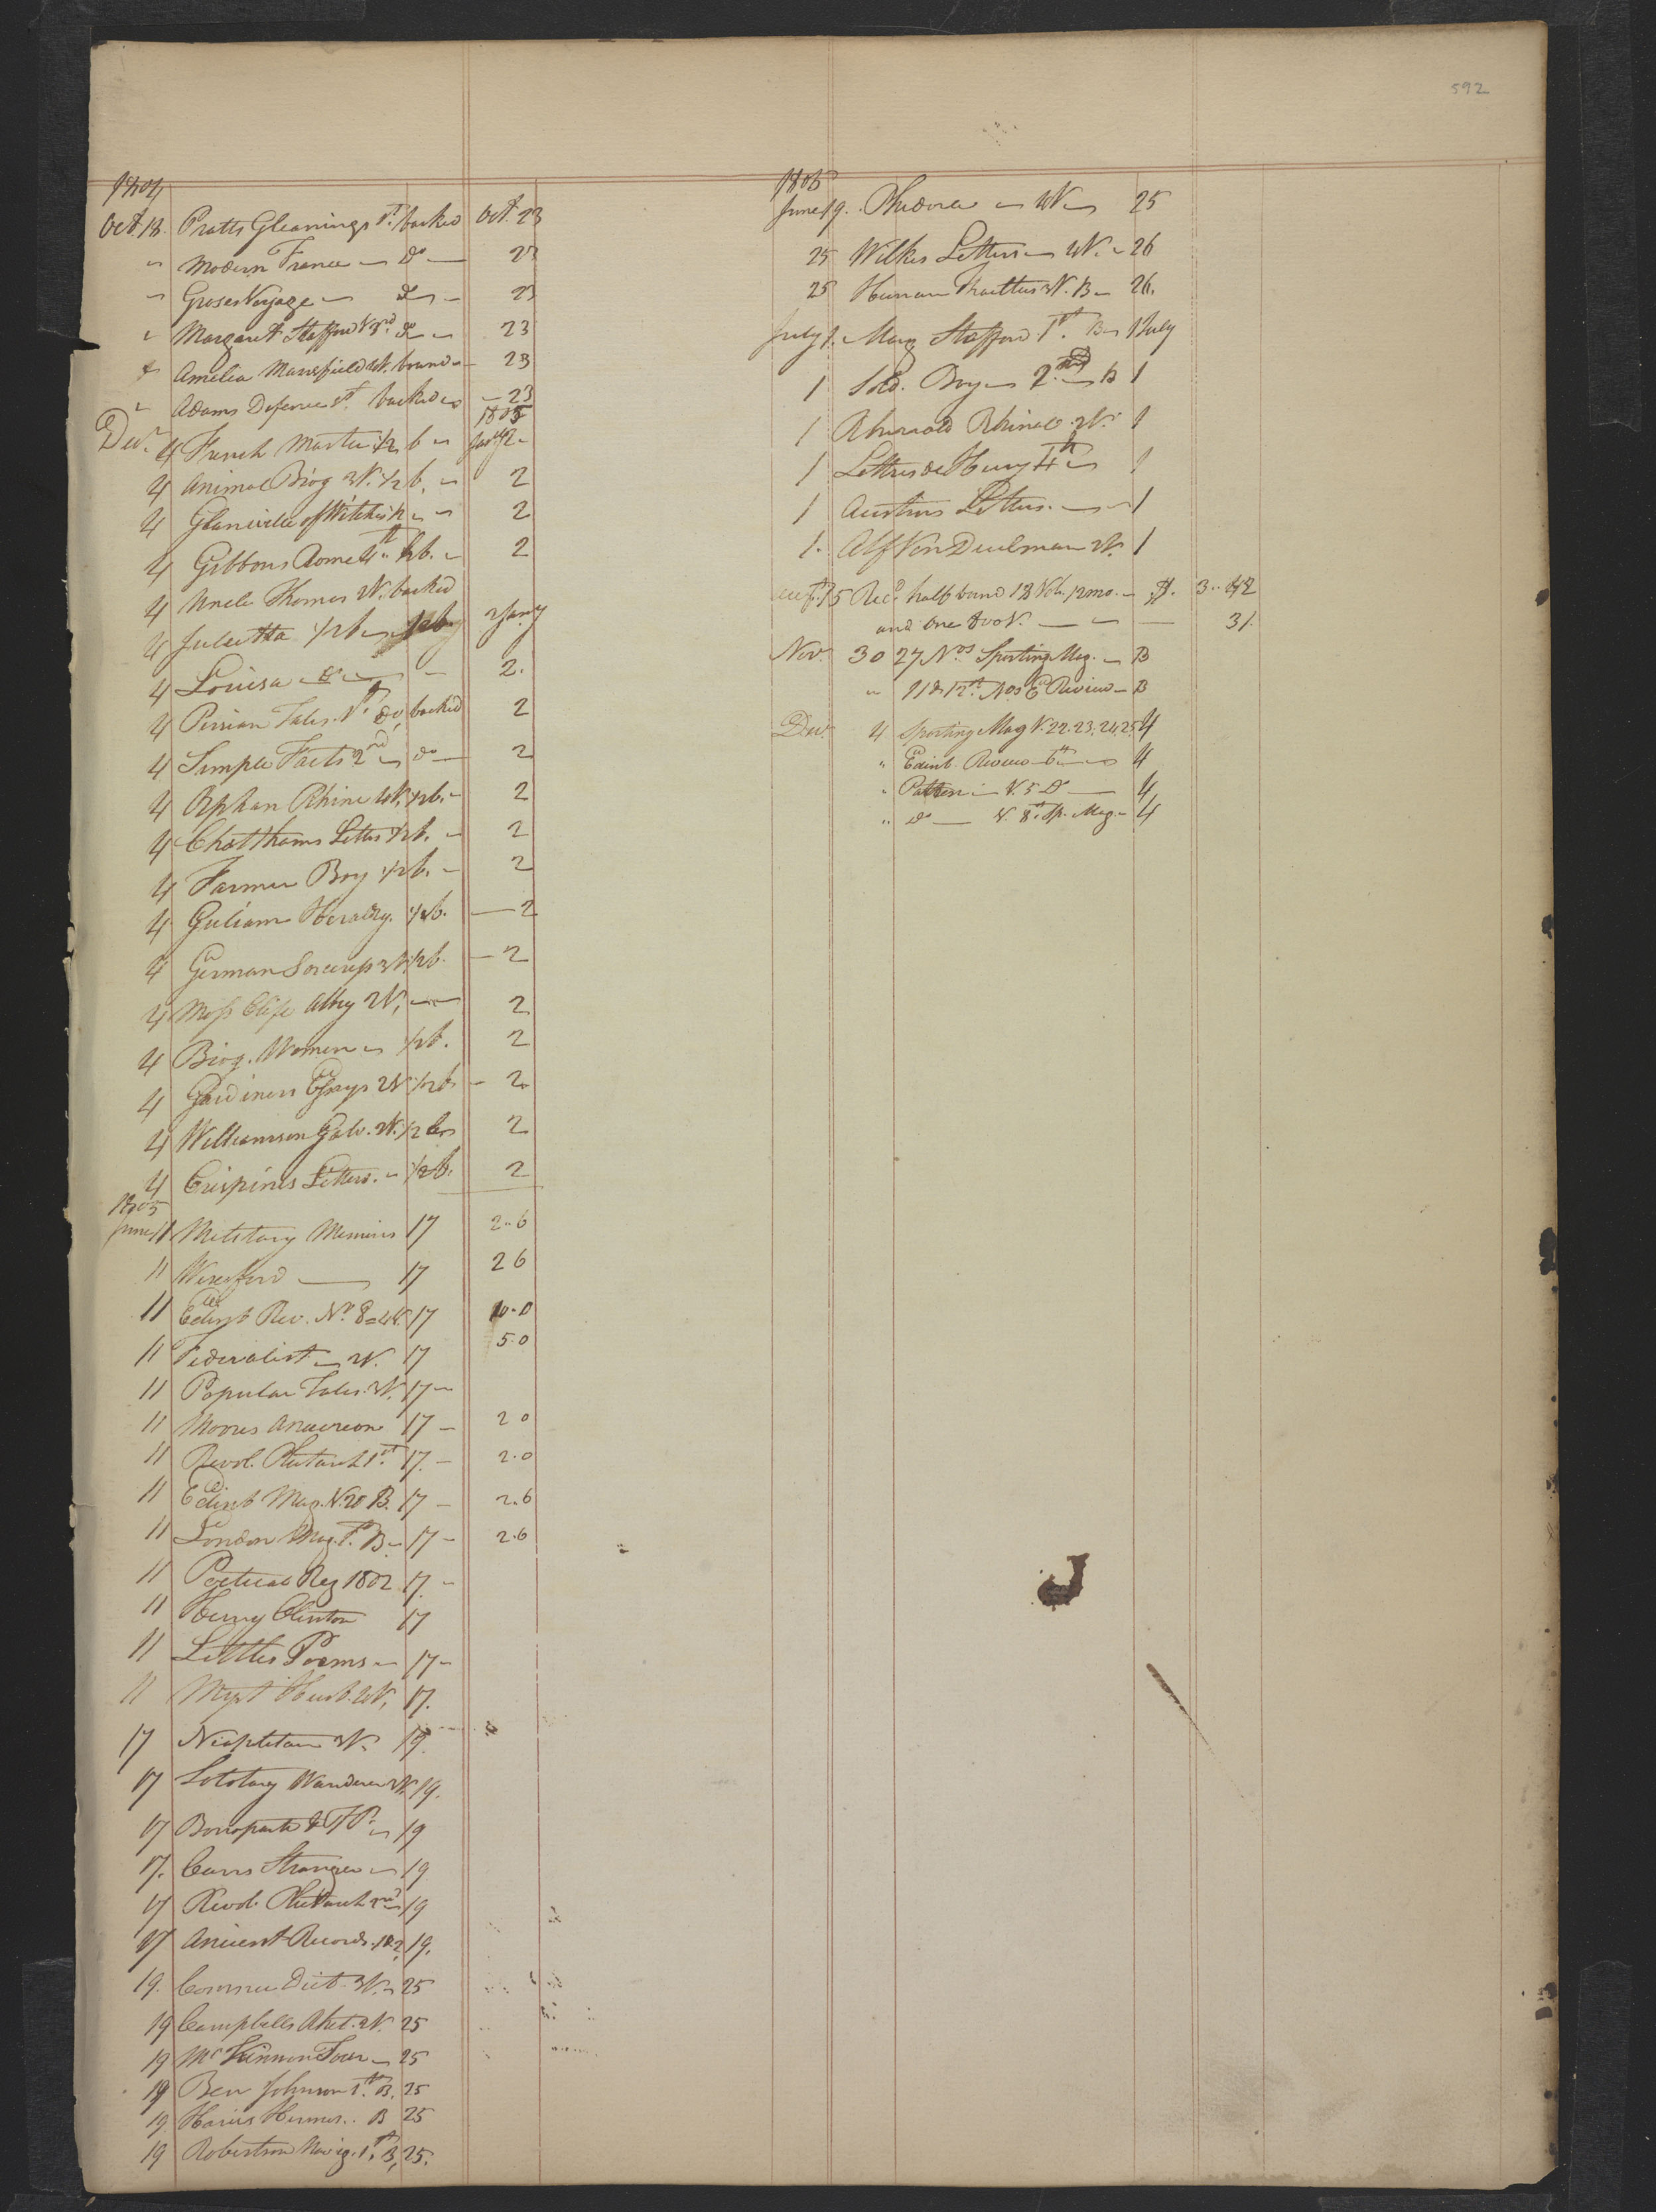 592
1804
Oct. 18. Pratts Gleanings 1st. backed Oct. 23
" Modern France — do — 23
" Groses Voyage — do — 23
" Margaret Stafford V 3rd. do — 23
" Amelia Mansfield 4V. bound — 23
" Adams Defence 1st. backed — 23
1805
Decr. 4 French Master 1/2 b — Jany 2
4 Animal Biog 3V. 1/2 b. — 2
4 Glanville of Witches 1/2 — 2
4 Gibbons Rome 4th 1/2 b. — 2
4 Uncle Thomas 2V. backed
4 Julietta 1/2 b — 2 Jany
4 Louisa — do — 2.
4 Persian Tales. 1st do, backed 2
4 Simple Facts 2nd — do — 2
4 Orphan Rhine 4V. 1/2 b. — 2
4 Chatthams Letters 1/2 b. — 2
4 Farmer Boy 1/2 b. — 2
4 Guliams Heraldry. 1/2 b. — 2
4 German Sorceress 3V. 1/2 b. — 2
4 Moss Clife Abby 2V, — 2
4 Biog. Women — 1/2 b. 2
4 Gardiners Essays 2V 1/2 b — 2
4 Williamson Galv. 2V. 1/2 b — 2
4 Crispines Letters. — 1/2 b. 2
1805
June 11 Military Memoirs 17 2..6
11 17 2 6
11 Edinb Rev. No. 8 = 4V. 17 10.0
11 Federalist — 2V. 17 5.0
11 Popular Tales. 2V. 17 —
11 Moores Anacreon 17 — 2 0
11 Revol. Plutarch 1st. 17. — 2.0
11 Edinb Mag. V. 20 B. 17 — 2.6
11 London Mag. 1st. B — 17 — 2.6
11 Poetical Reg 1802 17. —
11 Henry Clinton 17
11 Littles Poems — 17 —
11 Myst Husb. 4V, 17.
17 Neapolitan 3V. 19
17 Solotary Wanderer 3V. 19.
17 Bonoparte & — 19
17. Carrs Stranger — 19
17 Revol. Plutarch 2nd 19
17 Ancient Records. 1 & 2, 19.
19. Commer Dict. 3V. — 25
19 Campbells Rhet. 2V. 25
19 McKinnon Tour — 25
19 Ben Johnson 1st. B. 25
19 Harris Hermes.. B 25
19 Robertson Navig. 1st. B, 25.
1805
June 19. — 4V — 25
25 Wilkes Letters — 4V. — 26
25 Human 3V. B — 26.
July 1. Marg Stafford 1st. B — 1 July
1 Sold. Boy — 2nd — B 1
1 3V. 1
1 Lettres de Henry 4th — 1
1 Austins Letters. — 1
1. Alf Von Duelman 2V. 1
Augt. 25 Recd. half bound 18 Vols. 12mo. — $. 3..42
and one 8vo V. — 31.
Nov. 30 27 Nos Sporting Mag. — B
" 11 & 12th. Nos Ed Review — B
Decr. 4 Sporting Mag V. 22. 23. 24. 25 4
" Edinb. Review — 6th — 4
" Pattern — V. 5 Do — 4,
" do — V. 8th. Sp. Mag. — 4